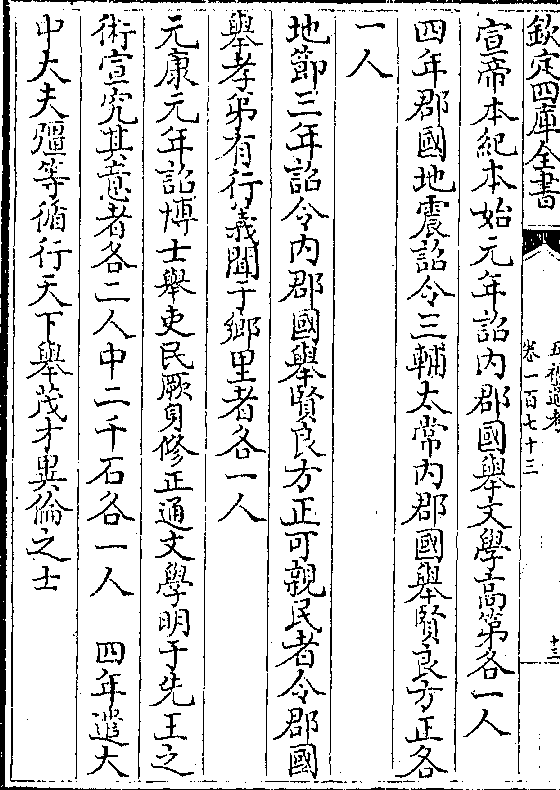 欽定四庫全書
五禮通考
卷一百七十三
十三
宣帝本紀本始元年詔内郡國舉文學高第各一人
四年郡國地震詔令三輔太常内郡國舉賢良方正各
一人
地節三年詔令内郡國舉賢良方正可親民者令郡國
舉孝弟有行義聞于鄉里者各一人
元康元年詔博士舉吏民厥身修正通文學明于先王之
術宣究其意者各二人中二千石各一人　四年遣大
中大夫彊等循行天下舉茂才異倫之士